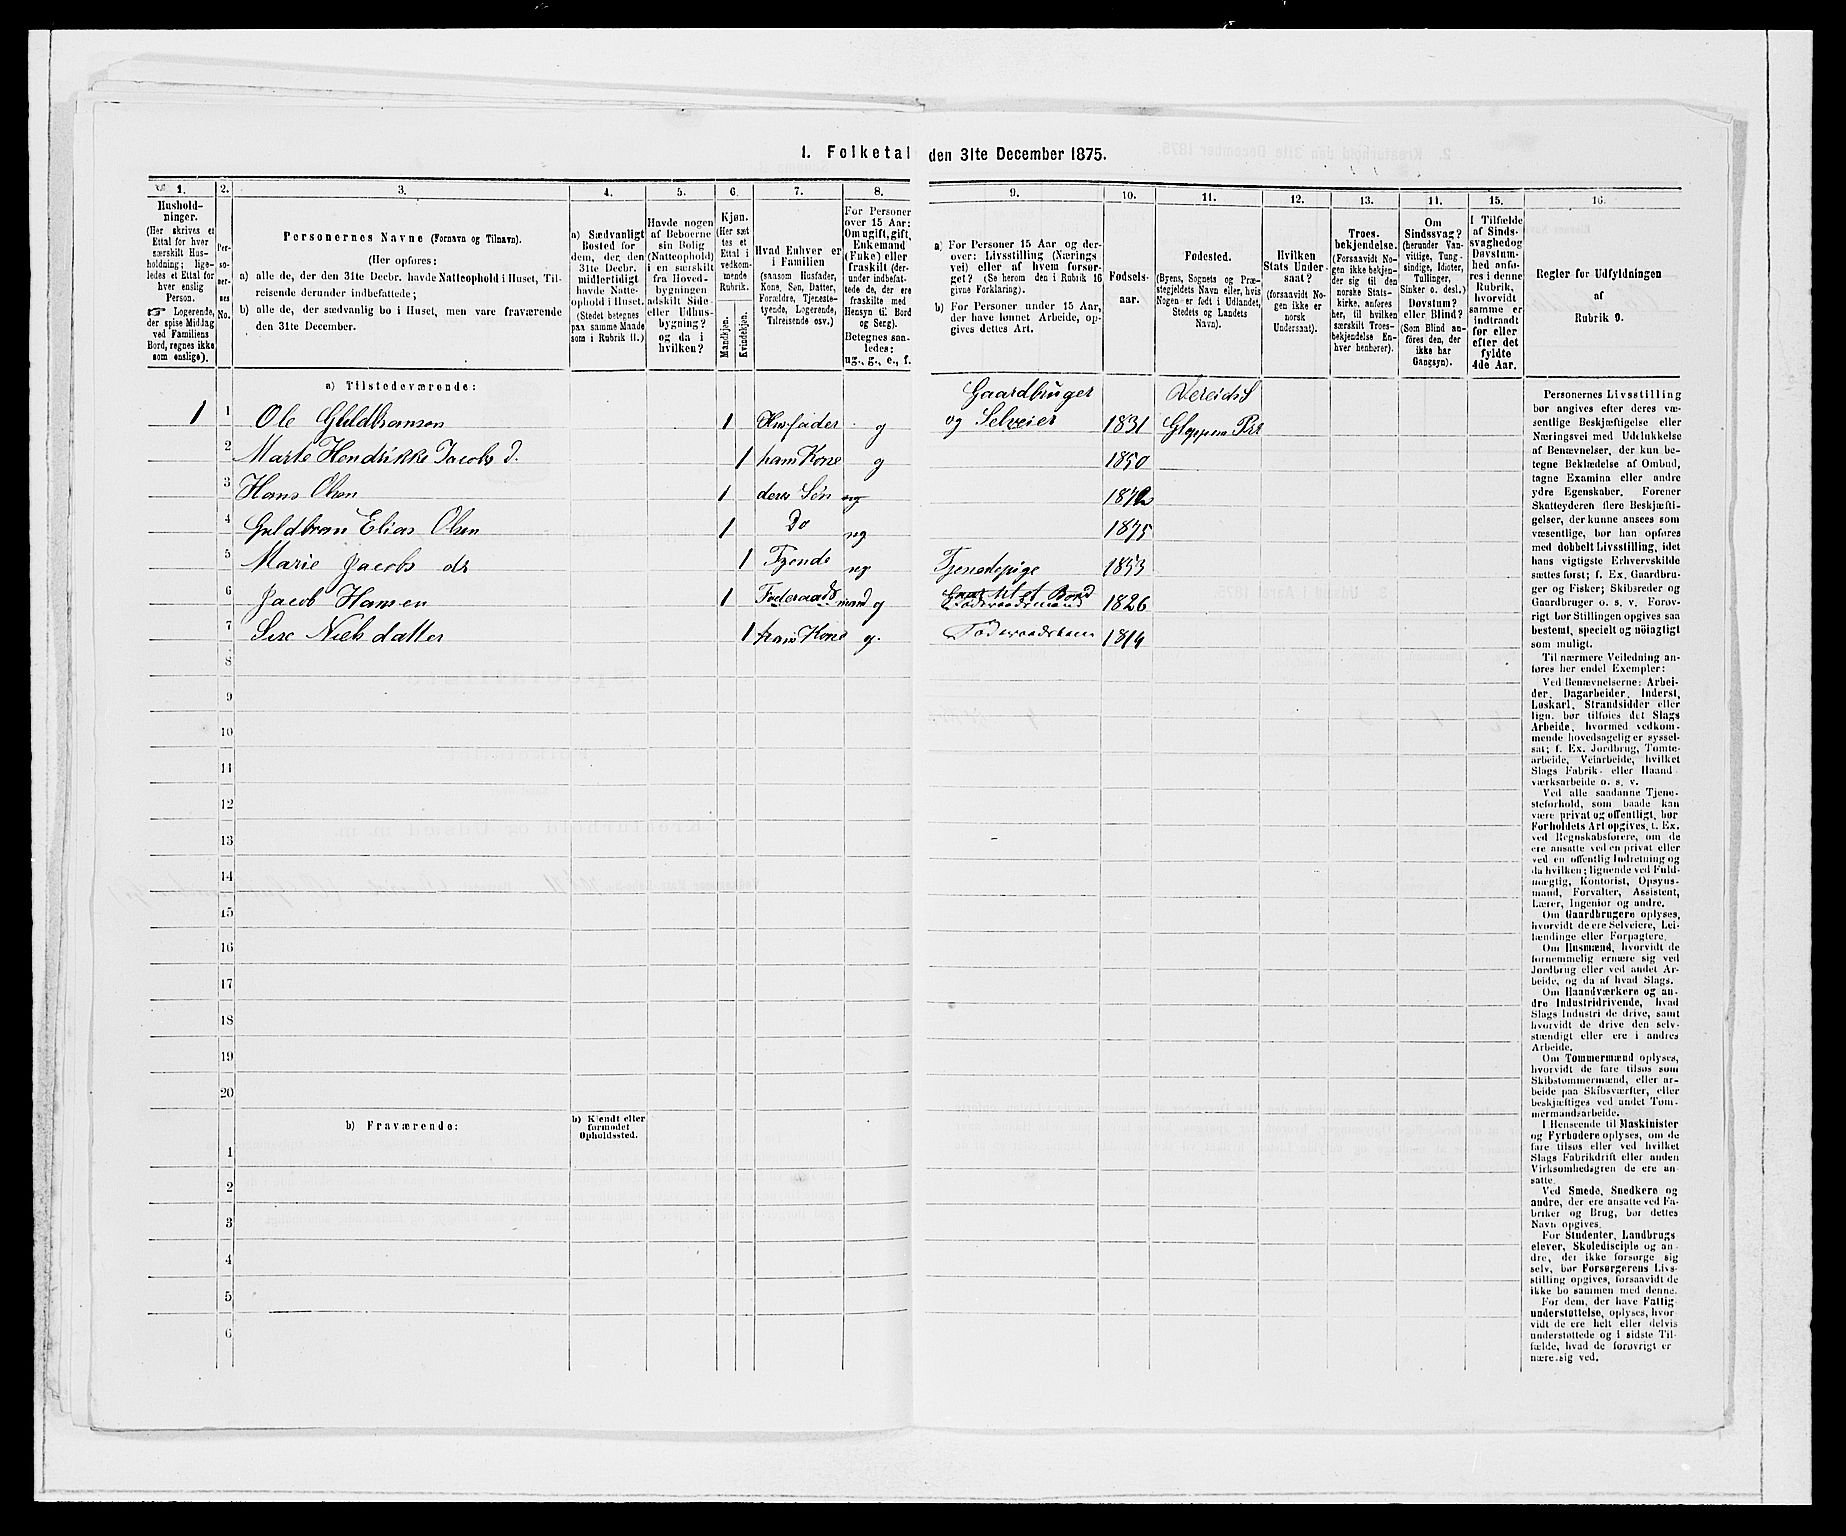 1. Folketal den 31te December 1875.
1.
2.
3.
4.
5.
6.
7.
8.
9.
10.
11.
12.
13.
14.
15.
16.
Hushold-
ninger.
(Her skrives et
Ettal for hver
særskilt Hus-
holdning; lige-
ledes et Ettal for
hver enslig
Person.
☞ Logerende,
der spise Middag
ved Familiens
Bord, regnes ikke
som enslige).
Per-
so-
ner-
nes
No.
Personernes Navne (Fornavn og Tilnavn).
(Her opføres:
a) alle de, der den 31te Decbr. havde Natteophold i Huset, Til-
reisende derunder indbefattede;
b) alle de, der sædvanlig bo i Huset, men vare fraværende
den 31te December.
a) Sædvanligt
Bosted for
dem, der den
31te Decbr.
midlertidigt
havde Natte-
ophold i Huset.
(Stedet betegnes
paa samme Maade
som i Rubrik 11.)
Havde nogen
af Beboerne
sin Bolig
(Natteophold)
i en særskilt
fra Hoved-
bygningen
adskilt Side-
eller Udhus-
bygning?
og da i
hvilken?
Kjøn.
(Her sæt
tes et
Ettal i
vedkom-
mende
Rubrik.
Mandkjøn.
Kvindekjøn.
Hvad Enhver er
i Familien
(saasom Husfader,
Kone, Søn, Datter,
Forældre, Tjeneste-
tyende, Logerende,
Tilreisende osv.)
For Personer
over 15 Aar:
Om ugift, gift,
Enkemand
(Enke) eller
fraskilt (der-
under indbefat-
tede de, der ere
fraskilte med
Hensyn til Bord
og Seng).
Betegnes saa-
ledes:
ug., g., e., f.
a) For Personer 15 Aar og der-
over: Livsstilling (Nærings
vei) eller af hvem forsør-
get? (Se herom den i Rubrik 16
givne Forklaring).
b) For Personer under 15 Aar,
der have lønnet Arbeide, op-
gives dettes Art.
Fødsels-
aar.
Fødested.
(Byens, Sognets og Præ-
stegjeldets Navn eller, hvis
Nogen er født i Udlandet,
Stedets og Landets
Navn).
Hvilken
Stats Under-
saat?
(forsaavidt No-
gen ikke er
norsk
Undersaat).
Troes-
bekjendelse.
(Forsaavidt No-
gen ikke bekjen-
der sig til den
norske Stats-
kirke, anføres
her, til hvilken
særskilt Troes-
bekjendelse En-
hver henhører).
Om
Sindssvag?
(herunder Van-
vittige, Tung-
sindige, Idioter,
Tullinger,
Sinker o. desl.)
Døvstum?
eller Blind?
(Som Blind an-
føres den, der
ikke har
Gangsyn).
I Tilfælde
af Sinds-
svaghed og
Døvstum-
hed anfø-
res i denne
Rubrik,
hvorvidt
samme er
indtraadt
før eller
efter det
fyldte
4de Aar.
Regler for Udfyldningen
af
Rubrik 9.
a) Tilstedeværende:
Gaardbruger
1 1 Ole Guldbransen 1 Husfader g og Selveier 1831 Gloppen
2 Marte Hendrikke Jacobs d. 1 hans Kone g 1850
3 Hans Olsen 1 deres Søn ug
4 Guldbran Elias Olsen 1 Do ug 1875
5 Marie Jacobs dr 1 Tjende ug Tjenestepige 1853
6 Jacob Hansen 1 Føderaads mand g Føderaadsmand 1826
7 Nielsdatter 1 hans Kone g. Føderaadskone
8
9
10
11
12
13
14
15
16
17
18
19
20
b) Fraværende:
b) Kjendt eller
formodet
Opholdssted.
1
2
3
4
5
6
Personernes Livsstilling
bør angives efter deres væ-
sentlige Beskjæftigelse eller
Næringsvei med Udelukkelse
af Benævnelser, der kun be-
tegne Beklædelse af Ombud,
tagne Examina eller andre
ydre Egenskaber. Forener
Skatteyderen flere Beskjæfti-
gelser, der kunne ansees som
væsentlige, bør han opføres
med dobbelt Livsstilling, idet
hans vigtigste Erhvervskilde
sættes først; f. Ex. Gaardbru-
ger og Fisker; Skibsreder og
Gaardbruger o. s. v. Forøv-
rigt bør Stillingen opgives saa
bestemt, specielt og nöiagtigt
som muligt.
Til nærmere Veiledning an-
føres her endel Exempler:
Ved Benævnelserne: Arbei-
der, Dagarbeider, Inderst,
Løskarl, Strandsidder eller
lign. bør tilføies det Slags
Arbeide, hvormed vedkom-
mende hovedsagelig er syssel-
sat; f. Ex. Jordbrug, Tomte-
arbeide, Veiarbeide, hvilket
Slags Fabrik- eller Haand-
værksarbeide o. s. v.
Ved alle saadanne Tjene-
steforhold, som baade kan
være privat og offentligt, bør
Forholdets Art opgives, t. Ex.
ved Regnskabsførere, om de
ere ansatte ved en privat eller
ved en offentlig Indretning og
da hvilken; lignende ved Fuld-
mægtig, Kontorist, Opsyns-
mand, Forvalter, Assistent,
Lærer, Ingeniør og andre.
Om Gaardbrugere oplyses,
hvorvidt de ere Selveiere, Lei-
lændinge eller Forpagtere.
Om Husmænd, hvorvidt de
fornemmelig ernære sig ved
Jordbrug eller ved andet Ar-
beide, og da af hvad Slags.
Om Haandværkere og an-
dre Industridrivende, hvad
Slags Industri de drive, samt
hvorvidt de drive den selv-
stændigt eller ere i andres
Arbeide.
Om Tømmermænd oplyses,
hvorvidt de fare tilsøs som
Skibstømmermænd, eller ar-
beide paa Skibsværfter, eller
beskjæftiges ved andet Tøm-
mermandsarbeide.
I Henseende til Maskinister
og Fyrbødere oplyses, om de
fare tilsøs eller ved hvilket
Slags Fabrikdrift eller anden
Virksomhedsgren de ere an-
satte.
Ved Smede, Snedkere og
andre, der ere ansatte ved Fa-
briker og Brug, bør dettes
Navn opgives.
For Studenter, Landbrugs
elever, Skoledisciple og an-
dre, der ikke forsørge sig
selv, bør Forsørgerens Livs-
stilling opgives, forsaavidt de
ikke bo sammen med denne.
For dem, der have Fattig
understøttelse, oplyses, hvor
vidt de ere helt eller delvis
understøttede og i sidste Til-
fælde, hvad de forøvrigt er
nære sig ved.